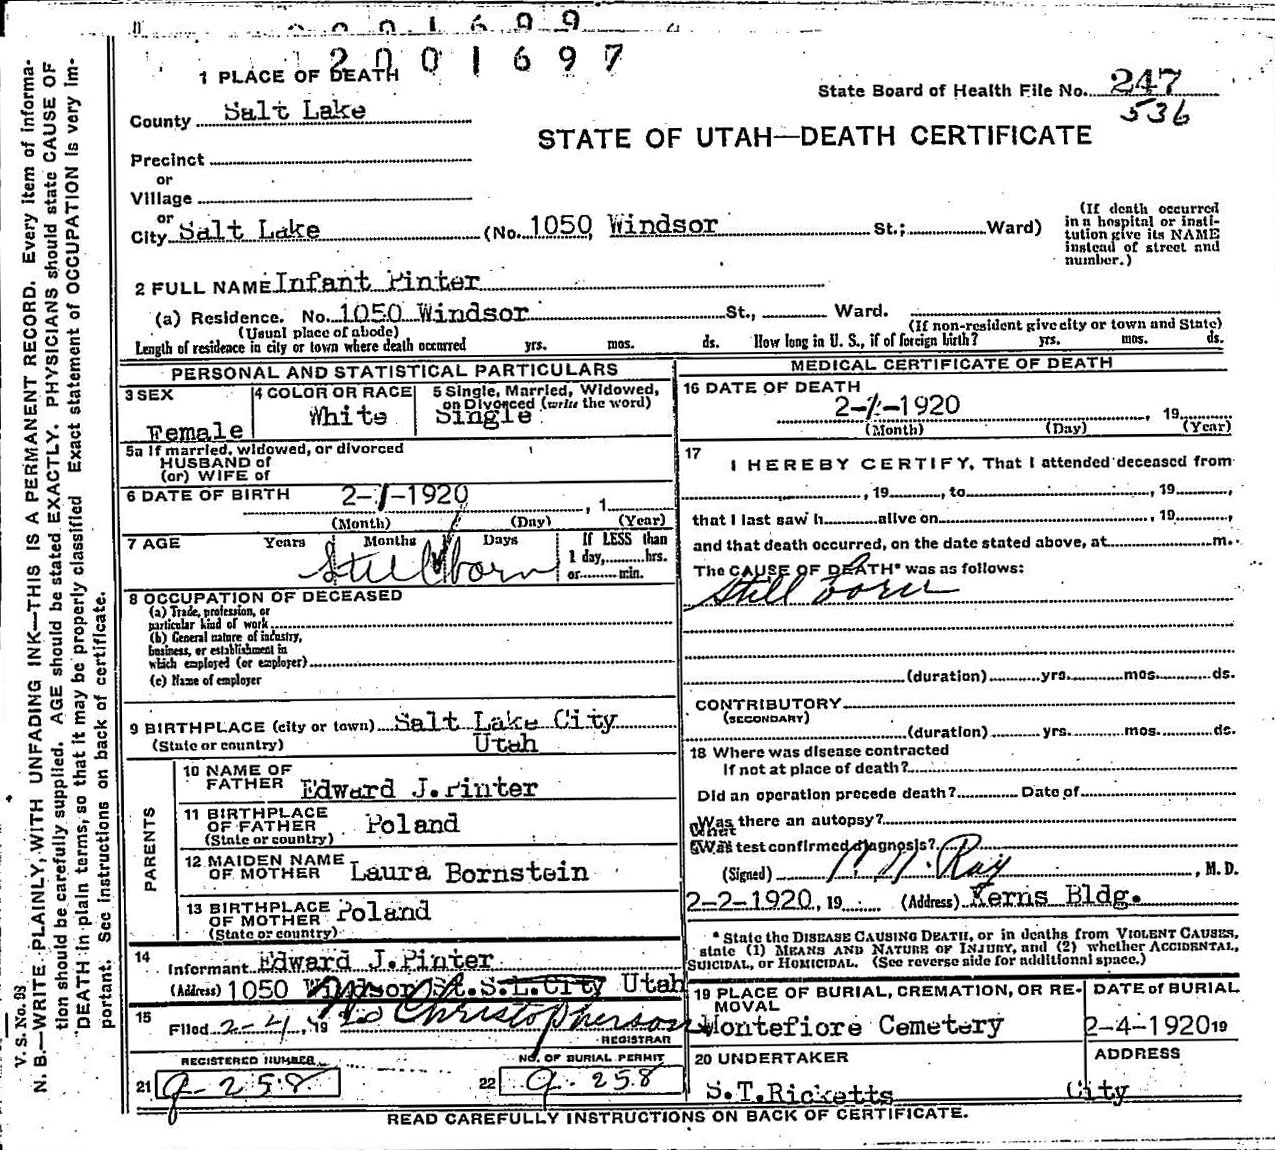 2001697
1 PLACE OF DEATH
State Board of Health File No. 247
536
County Salt Lake
STATE OF UTAH—DEATH CERTIFICATE
Precinct
or
Village
or
City Salt Lake (No. 1050 Windsor St.; Ward)
(If death occurred in a hospital or institution give its NAME instead of street and number.)
2 FULL NAME Infant Pinter
(a) Residence. No. 1050 Windsor St., Ward.
(Usual place of abode) (If non-resident give city or town and State)
Length of residence in city or town where death occurred yrs. mos. ds. How long in U. S., if of foreign birth? yrs. mos. ds.
PERSONAL AND STATISTICAL PARTICULARS
3 SEX
Female
4 COLOR OR RACE
White
5 Single, Married, Widowed,
or Divorced (write the word)
Single
5a If married, widowed, or divorced
HUSBAND of
(or) WIFE of
6 DATE OF BIRTH 2-1-1920, 1
(Month) (Day) (Year)
7 AGE Years Months Days If LESS than
1 day, hrs.
or min.
Still born
8 OCCUPATION OF DECEASED
(a) Trade, profession, or
particular kind of work
(b) General nature of industry,
business, or establishment in
which employed (or employer)
(c) Name of employer
9 BIRTHPLACE (city or town) Salt Lake City
(State or country) Utah
PARENTS
10 NAME OF
FATHER Edward J.Pinter
11 BIRTHPLACE
OF FATHER Poland
(State or country)
12 MAIDEN NAME
OF MOTHER Laura Bornstein
13 BIRTHPLACE
OF MOTHER Poland
(State or country)
14
Informant Edward J.Pinter
(Address) 1050 Windsor St.S.L.City Utah
15
Filed 2-4, 19 20 Christopherson
REGISTRAR
REGISTERED NUMBER
21 9-258
NO. OF BURIAL PERMIT
22 9-258
MEDICAL CERTIFICATE OF DEATH
16 DATE OF DEATH
2-1-1920, 19
(Month) (Day) (Year)
17
I HEREBY CERTIFY, That I attended deceased from
, 19, to , 19,
that I last saw h alive on , 19,
and that death occurred, on the date stated above, at m.
The CAUSE OF DEATH* was as follows:
Still born
(duration) yrs. mos. ds.
CONTRIBUTORY
(SECONDARY)
(duration) yrs. mos. ds.
18 Where was disease contracted
If not at place of death?
Did an operation precede death? Date of
Was there an autopsy?
What test confirmed diagnosis?
(Signed) Ray, M.D.
2-2-1920, 19 (Address) Kerns Bldg.
* State the DISEASE CAUSING DEATH, or in deaths from VIOLENT CAUSES,
state (1) MEANS AND NATURE OF INJURY, and (2) whether ACCIDENTAL,
SUICIDAL, or HOMICIDAL. (See reverse side for additional space.)
19 PLACE OF BURIAL, CREMATION, OR REMOVAL
Montefiore Cemetery
DATE of BURIAL
2-4-1920 19
20 UNDERTAKER
S.T.Ricketts
ADDRESS
City
READ CAREFULLY INSTRUCTIONS ON BACK OF CERTIFICATE.
V. S. No. 93
N. B.—WRITE PLAINLY, WITH UNFADING INK—THIS IS A PERMANENT RECORD. Every item of informa-
tion should be carefully supplied. AGE should be stated EXACTLY. PHYSICIANS should state CAUSE OF
DEATH in plain terms, so that it may be properly classified. Exact statement of OCCUPATION is very im-
portant. See instructions on back of certificate.